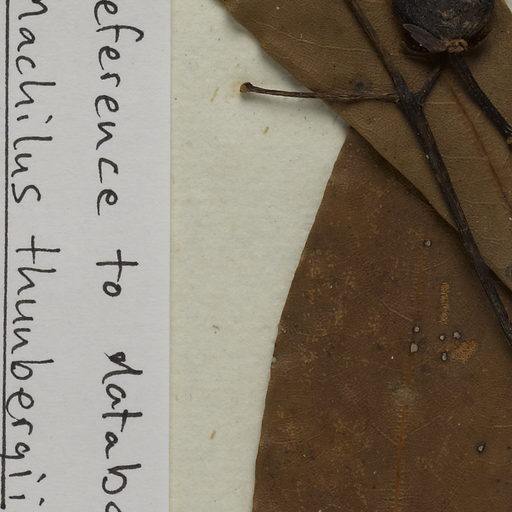 eference to databa
machilus thunbergii